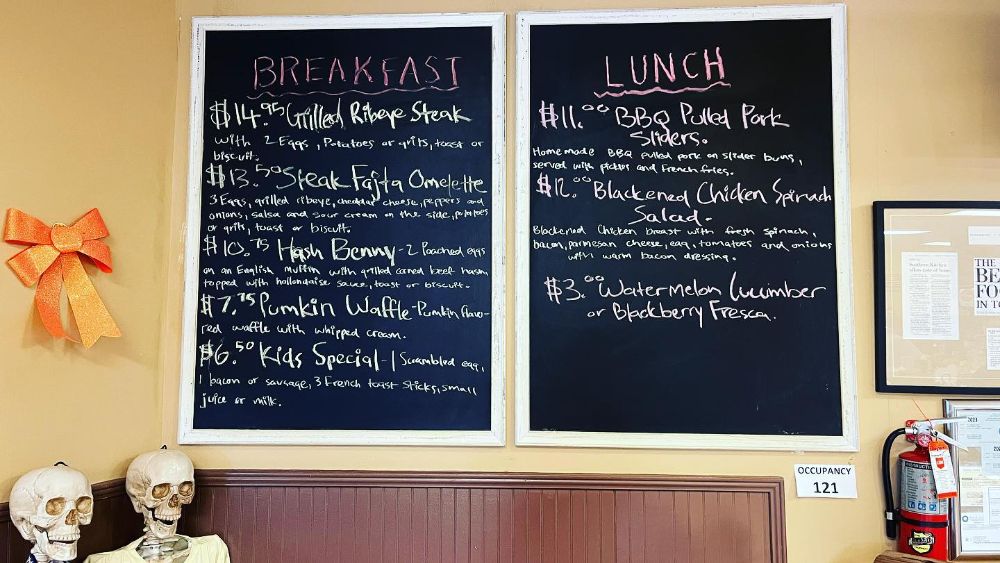 BREAKFAST
$14.95 Grilled Ribeye Steak
with 2 Eggs, Potatoes or grits, toast or
biscuit.
$13.50 Steak Fajta Omelette
3 Eggs, grilled ribeye, cheddar cheese, peppers and
onions, salsa and sour cream on the side, potatoes
or grits, toast or biscuit.
$10.75 Hash Benny - 2 Poached eggs
on an English muffin with grilled corned beef hash,
topped with hollandaise sauce, toast or biscuit.
$7.75 Pumkin Waffle - Pumkin flavo-
red waffle with whipped cream.
$6.50 Kids Special - 1 Scrambled egg,
1 bacon or sausage, 3 French toast sticks, small
juice or milk.
LUNCH
$11.00 BBQ Pulled Pork
Sliders.
Homemade BBQ pulled pork on slider buns,
served with pickles and french fries.
$12.00 Blackened Chicken Spinach
Salad.
Blackened Chicken breast with fresh spinach,
bacon, parmesan cheese, egg, tomatoes and onions
with warm bacon dressing.
$3.00 Watermelon Cucumber
or Blackberry Fresca.
OCCUPANCY
121
THE
BE
FO
IN T